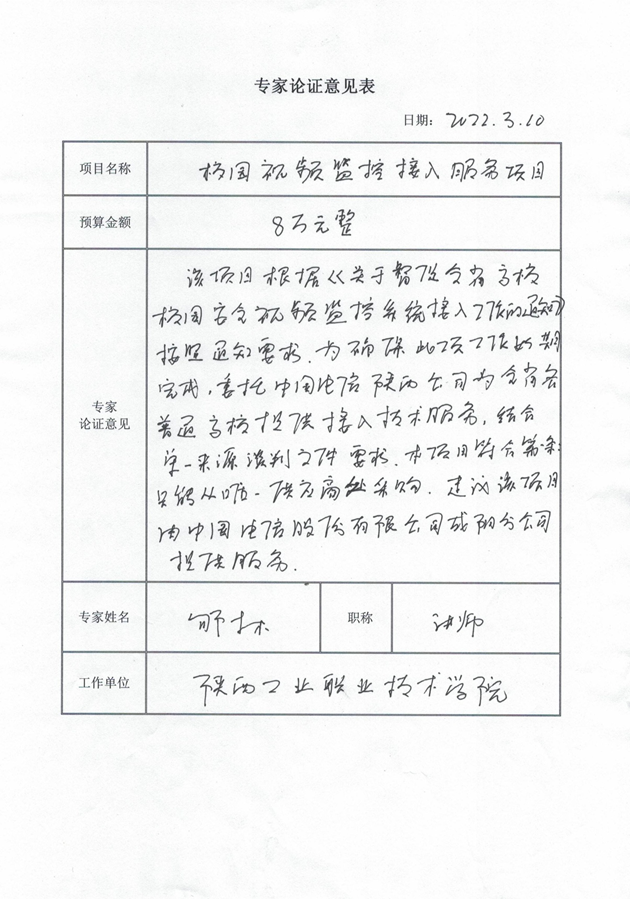 专家论证意见表
日期: 2022.3.10
项目名称 校园视频监控接入服务项目
预算金额 8万元整
该项目根据《关于暂促全省高校
校园安全视频监控系统接入工作的通知》
按照通知要求.为确保此项工作如期
完成,委托中国电信陕西公司为全省各
普通高校提供接入技术服务,结合
单一来源谈判文件要求.本项目符合第一条
只能从唯一供应商处采购.建议该项目
由中国电信股份有限公司咸阳分公司
提供服务.
专家
论证意见
专家姓名 职称 讲师
工作单位 陕西工业职业技术学院